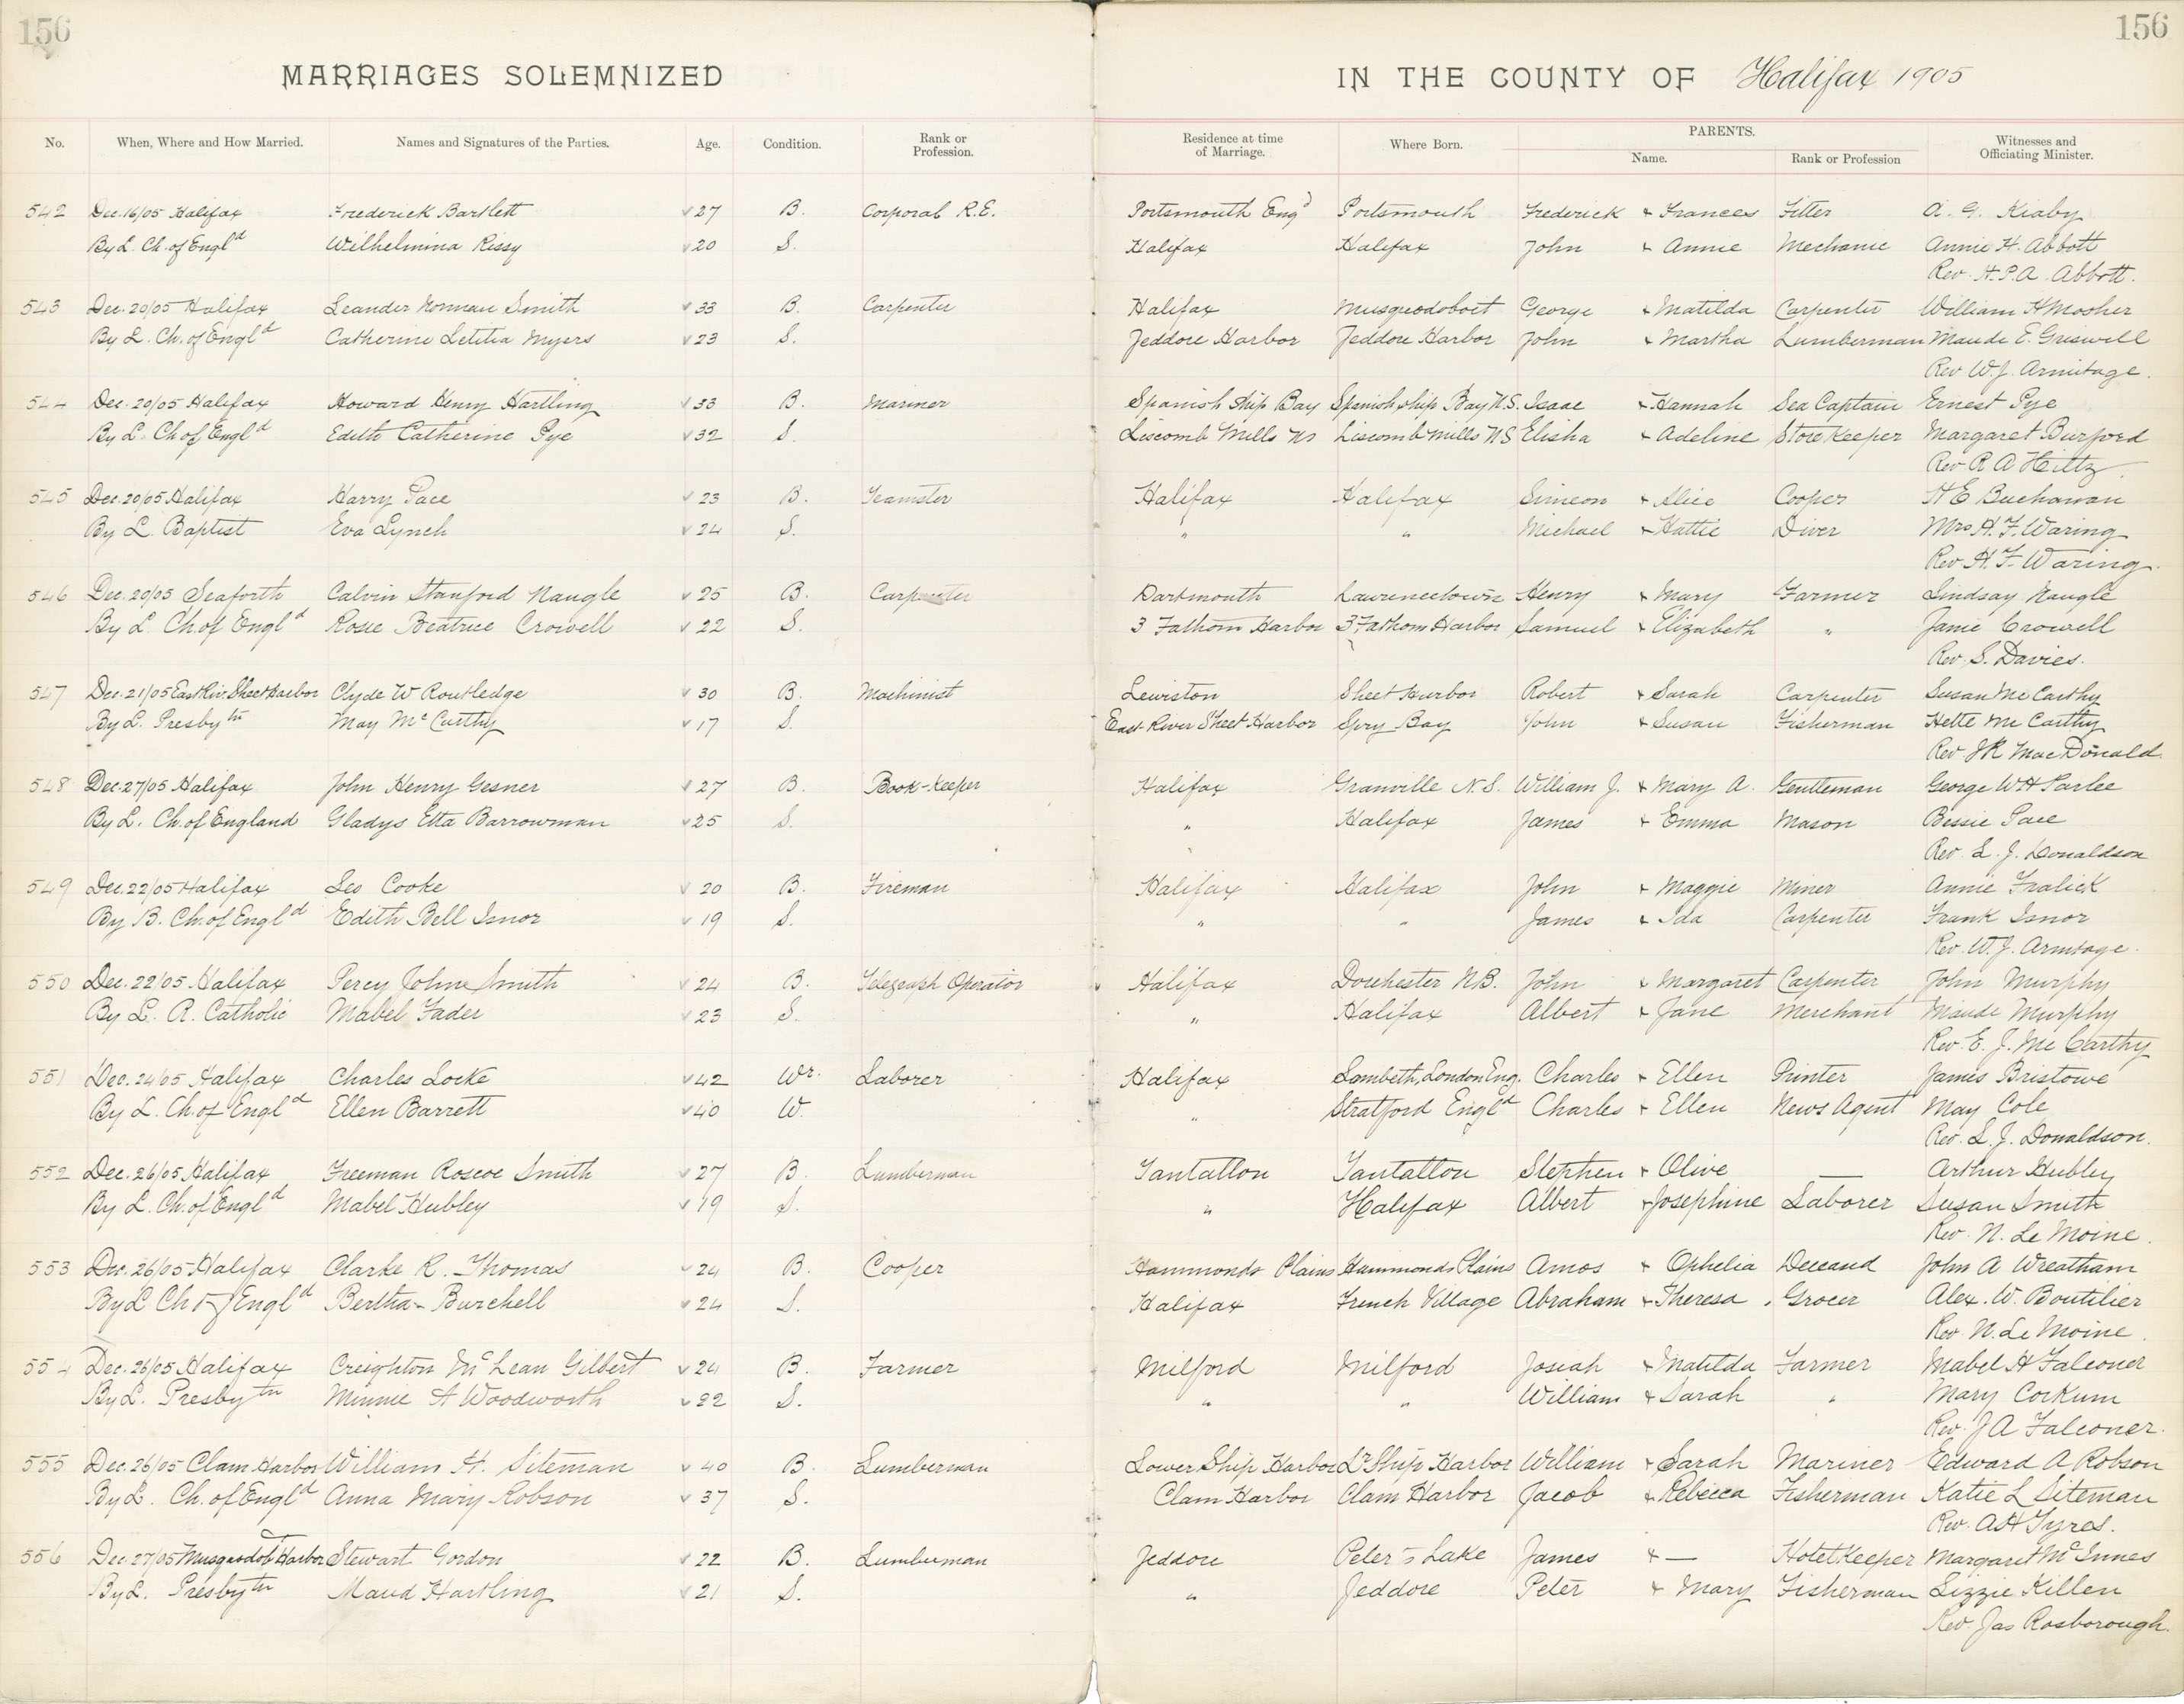 156
156
MARRIAGES SOLEMNIZED IN THE COUNTY OF Halifax 1905
No. When, Where and How Married. Names and Signatures of the Parties. Age. Condition. Rank or Profession. Residence at time of Marriage. Where Born. PARENTS. Name. Rank or Profession Witnesses and Officiating Minister.
542 Dec. 16/05 Halifax Frederick Bartlett 27 B. Corporal R.E. Portsmouth Eng^d Portsmouth Frederick & Frances Fitter A. G.
By L. Ch. of Engl^d Wilhelmina Rissy 20 S. Halifax Halifax John & Annie Mechanic Annie H. Abbott
Rev. H.P.A. Abbott.
543 Dec. 20/05 Halifax Leander Norman Smith 33 B. Carpenter Halifax Musquodoboit George & Matilda Carpenter William H Mosher
By L. Ch. of Engl^d Catherine Letitia Myers 23 S. Jeddore Harbor Jeddore Harbor John & Martha Lumberman Maude E. Griswell
Rev W.J. Armitage.
544 Dec. 20/05 Halifax Howard Henry Hartling 33 B. Mariner Spanish Ship Bay Spanish Ship Bay N.S. Isaac & Hannah Sea Captain Ernest Pye
By L. Ch of Engl^d Edith Catherine Pye 32 S. Liscomb Mills NS Liscomb Mills NS Elisha & Adeline Store Keeper Margaret Burford
Rev. R A Hiltz
545 Dec. 20/05 Halifax Harry Pace 23 B. Teamster Halifax Halifax Simeon & Alice Cooper H E Buchanan
By L. Baptist Eva Lynch 24 S. " " Michael & Hattie Diver Mrs H. F. Waring
Rev H. F. Waring.
546 Dec. 20/05 Seaforth Calvin Stanford Naugle 25 B. Carpenter Dartmouth Lawrencetown Henry & Mary Farmer Lindsay Naugle
By L Ch. of Engl^d Rosie Beatrice Crowell 22 S. 3 Fathom Harbor 3 Fathom Harbor Samuel & Elizabeth " Janie Crowell
Rev. S. Davies.
547 Dec. 21/05 East Riv. Sheet Harbor Clyde W Routledge 30 B. Machinist Lewiston Sheet Harbor Robert & Sarah Carpenter Susan McCarthy
By L. Presby^tn May M^cCarthy 17 S. East River Sheet Harbor Spry Bay John & Susan Fisherman Hette McCarthy
Rev J R MacDonald.
548 Dec. 27/05 Halifax John Henry Gesner 27 B. Book-Keeper Halifax Granville N.S. William J. & Mary A. Gentleman George W H Parlee
By L. Ch. of England Gladys Etta Barrowman 25 S. " Halifax James & Emma Mason Bessie Pace
Rev. L. J. Donaldson
549 Dec. 22/05 Halifax Leo Cooke 20 B. Fireman Halifax Halifax John & Maggie Miner Annie Fralick
By B. Ch. of Engl^d Edith Bell Isnor 19 S. " " James & Ida Carpenter Frank Isnor
Rev. W. J. Armitage.
550 Dec. 22/05 Halifax Percy John Smith 24 B. Telegraph Operator Halifax Dorchester N.B. John & Margaret Carpenter John Murphy
By L. R. Catholic Mabel Fader 23 S. " Halifax Albert & Jane Merchant Maude Murphy
Rev. E. J. McCarthy
551 Dec. 24/05 Halifax Charles Locke 42 Wr. Laborer Halifax Lambeth, London Eng. Charles & Ellen Printer James Bristowe
By L. Ch. of Engl^d Ellen Barrett 40 W. " Stratford Engl^d Charles & Ellen News Agent May Cole
Rev. L. J. Donaldson.
552 Dec. 26/05 Halifax Freeman Roscoe Smith 27 B. Lumberman Tantallon Tantallon Stephen & Olive — Arthur Hubley
By L. Ch. of Engl^d Mabel Hubley 19 S. " Halifax Albert & Josephine Laborer Susan Smith
Rev. N. Le Moine.
553 Dec. 26/05 Halifax Clarke R. Thomas 24 B. Cooper Hammonds Plains Hammonds Plains Amos & Ophelia Deceased John A Wreatham
By L Ch of Engl^d Bertha Burchell 24 S. Halifax French Village Abraham & Theresa Grocer Alex. W. Boutilier
Rev. N. Le Moine.
554 Dec. 26/05 Halifax Creighton M^cLean Gilbert 24 B. Farmer Milford Milford Josiah & Matilda Farmer Mabel H Falconer
By L. Presby^tn Minnie A Woodworth 22 S. " " William & Sarah " Mary Corkum
Rev. J A Falconer.
555 Dec. 26/05 Clam Harbor William H. Siteman 40 B. Lumberman Lower Ship Harbor L^r Ship Harbor William & Sarah Mariner Edward A Robson
By L. Ch. of Engl^d Anna Mary Robson 37 S. Clam Harbor Clam Harbor Jacob & Rebecca Fisherman Katie L Siteman
Rev. A H Tyres.
556 Dec 27/05 Musquodob^t Harbor Stewart Gordon 22 B. Lumberman Jeddore Peter's Lake James & — Hotel Keeper Margaret M^cInnes
By L. Presby^tn Maud Hartling 21 S. " Jeddore Peter & Mary Fisherman Lizzie Killen
Rev. Jas Rosborough.